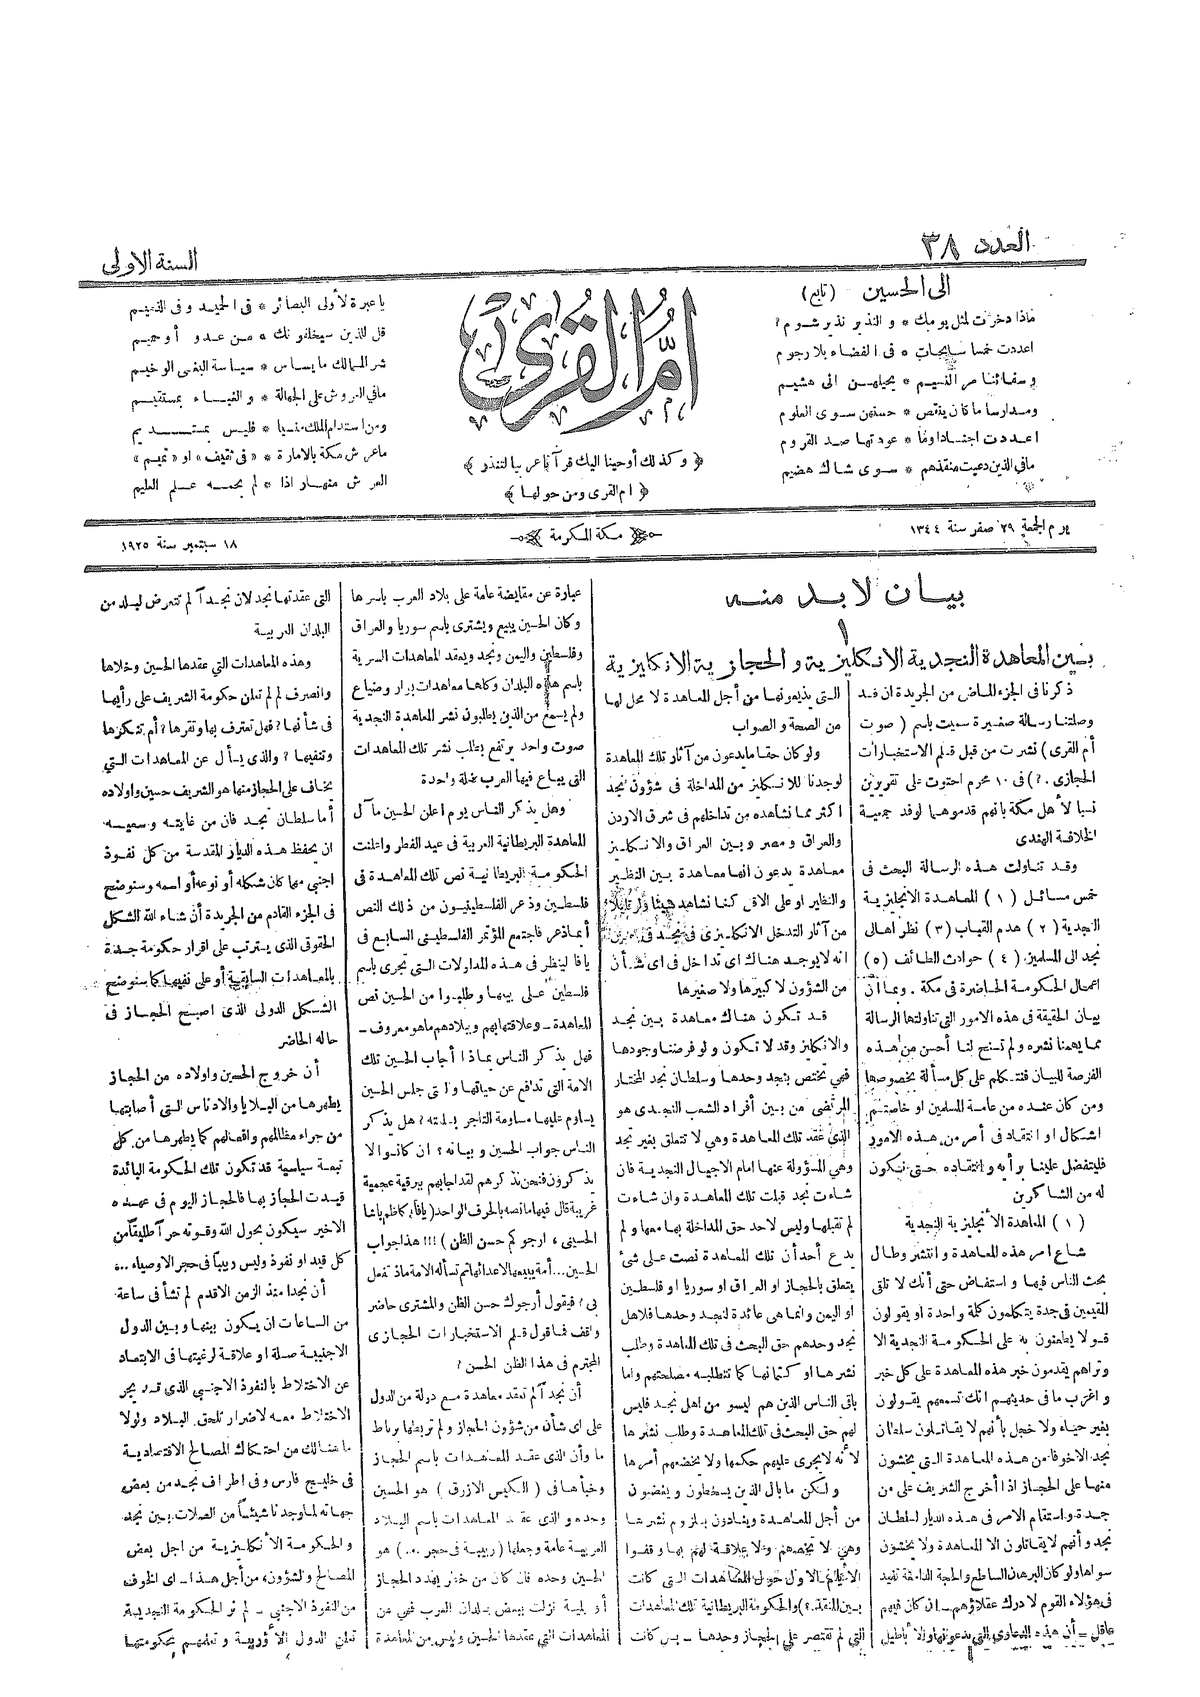 العدد ٣٨
السنة الاولى
الى الحسين (تابع)
ماذا دخرت لمثل يومك * والنذير نذير شوم ؟
اعددت خمسا سابحات * فى الفضاء بلا رجوم
وسفائنا مر النسيم * يحيلهن الى هشيم
ومدارسا ما كان ينقص * حسنهن سوى العلوم
اعددت اجنادا وفا * عودتها صد القروم
مافي الذين دعيت منقذهم * سوى شاك هضيم
أم القرى
﴿ وكذلك أوحينا اليك قرآنا عربيا لتنذر ﴾
﴿ ام القرى ومن حولها ﴾
يا عبرة لأولى البصائر * فى الحميد وفى الذميم
قل للذين سيخلفونك * من عدو أو حميم
شر الممالك ما يساس * سياسة البغى الوخيم
مافي العروش على الجهالة * والغباء بمستقيم
ومن استدام الملك منيا * فليس بمستديم
ماعرش مكة بالامارة * «فى ثقيف» او «تميم»
العرش منهار اذا * لم يحمه علم العليم
يوم الجمعة ٢٩ صفر سنة ١٣٤٤
مكة المكرمة
١٨ سبتمبر سنة ١٩٢٥
بيان لا بد منه
١
بين المعاهدة النجدية الانكليزية والحجازية الانكليزية
ذكرنا فى الجزء الماضى من الجريدة ان قد
وصلتنا رسالة صغيرة سميت باسم ( صوت
أم القرى ) نشرت من قبل قلم الاستخبارات
الحجازى .؟) فى ١٠ محرم احتوت على تقريرين
نسبا لأهل مكة بانهم قدموهما لوفد جمعية
الخلافة الهندى
وقد تناولت هذه الرسالة البحث فى
خمس مسائل (١) المعاهدة الانجليزية
النجدية (٢) هدم القباب (٣) نظر أهالى
نجد الى المسلمين (٤) حوادث الطائف (٥)
اعمال الحكومة الحاضرة فى مكة . وبما أن
بيان الحقيقة فى هذه الامور التى تناولتها الرسالة
مما يهمنا نشره ولم تسنح لنا أحسن من هذه
الفرصة للبيان فنتكلم على كل مسألة بخصوصها
ومن كان عنده من عامة المسلمين او خاصتهم
اشكال او انتقاد فى أمر من هذه الامور
فليتفضل علينا برأيه وانتقاده حتى نكون
له من الشاكرين
(١) المعاهدة الأنجليزية النجدية
شاع امر هذه المعاهدة وانتشر وطال
بحث الناس فيها واستفاض حتى أنك لا تلقى
المقيمين فى جدة يتكلمون كلمة واحدة او يقولون
قولا يطعنون به على الحكومة النجدية الا
وتراهم يقدمون خبر هذه المعاهدة على كل خبر
واغرب مافى حديثهم انك تسمعهم يقولون
بغير حياء ولا خجل بأنهم لا يقاتلون سلطان
نجد الاخوفا من هذه المعاهدة التى يخشون
منها على الحجاز اذا أخرج الشريف على من
جدة واستقام الامر فى هذه الديار لسلطان
نجد وأنهم لا يقاتلون الا المعاهدة ولا يخشون
سواها ولو كان البرهان الساطع والحجة الدامغة تفيد
فى هؤلاء القوم لا درك عقلاؤهم – ان كان فيهم
عاقل – أن هذه الدعاوى التى يدعونها والأباطيل
التى يذيعونها من أجل المعاهدة لا محل لها
من الصحة والصواب
ولو كان حقا ما يدعون من آثار تلك المعاهدة
لوجدنا للانكليز من المداخلة فى شؤون نجد
اكثر مما نشاهده من تداخلهم فى شرق الاردن
والعراق ومصر وبين العراق والانكليز
معاهدة يدعون انها معاهدة بين النظير
والنظير او على الاقل كنا نشاهد شيئا ولو قليلا
من آثار التدخل الانكليزى فى نجد فى حين
انه لا يوجد هناك اى تداخل فى اى شأن
من الشؤون لا كبيرها ولا صغيرها
قد تكون هناك معاهدة بين نجد
والانكليز وقد لا تكون ولو فرضنا وجودها
فهى تختص بنجد وحدها وسلطان نجد المختار
المرتضى من بين أفراد الشعب النجدى هو
الذى عقد تلك المعاهدة وهى لا تتعلق بغير نجد
وهى المسؤولة عنها امام الاجيال النجدية فان
شاءت نجد قبلت تلك المعاهدة وان شاءت
لم تقبلها وليس لاحد حق المداخلة بها معها ولم
يدع أحد أن تلك المعاهدة نصت على شئ
يتعلق بالحجاز او العراق او سوريا او فلسطين
او اليمن وانما هى عائدة لنجد وحدها فلاهل
نجد وحدهم حق البحث فى تلك المعاهدة وطلب
نشرها او كتمانها كما تتطلبه مصلحتهم واما
باقى الناس الذين هم ليسو من اهل نجد فليس
لهم حق البحث فى تلك المعاهدة وطلب نشرها
لأنه لا يجرى عليهم حكمها ولا يخضعهم أمرها
ولكن ما بال الذين يسخطون ويغضبون
من أجل المعاهدة وينادون بلزوم نشرها
وهى لا تخصهم ولا علاقة لهم بها وقفوا
الأعوام الاول حول المعاهدات التى كانت
بين المنقذ ؟) والحكومة البريطانية تلك المعاهدات
التى لم تقتصر على الحجاز وحدها – بل كانت
عبارة عن مقايضة عامة على بلاد العرب باسرها
وكان الحسين يبيع ويشترى باسم سوريا والعراق
وفلسطين واليمن ونجد ويعقد المعاهدات السرية
باسم هذه البلدان وكلها معاهدات بوار وضياع
ولم يسمع من الذين يطلبون نشر المعاهدة النجدية
صوت واحد يرتفع بطلب نشر تلك المعاهدات
التى يباع فيها العرب جملة واحدة
وهل يذكر الناس يوم اعلن الحسين مآل
المعاهدة البريطانية العربية فى عيد الفطر واعلنت
الحكومة البريطانية نص تلك المعاهدة فى
فلسطين وذعر الفلسطينيون من ذلك النص
أيما ذعر فاجتمع المؤتمر الفلسطينى السابع فى
يافا لينظر فى هذه المداولات التى تجرى باسم
فلسطين على بيعها وطلبوا من الحسين نص
المعاهدة – وعلاقتهابهم وببلادهم ماهو معروف –
فهل يذكر الناس بماذا أجاب الحسين تلك
الامة التى تدافع عن حياتها والتى جلس الحسين
يساوم عليها مساومة التاجر بسلعته ؟ هل يذكر
الناس جواب الحسين وبيانه ؟ ان كانوا لا
يذكرون فنحن نذكرهم لقد اجابهم ببرقية عجمية
غريبة قال فيها مانصه بالحرف الواحد ( يافا، كاظم باشا
الحسينى ، ارجوكم حسن الظن ) !!! هذا جواب
الحسين ... أمة يبيعها لاعدائها ثم تسأله الامة ماذا تفعل
بى ؟ فيقول أرجوك حسن الظن والمشترى حاضر
واقف فما قول قلم الاستخبارات الحجازى
المحترم فى هذا الظن الحسن ؟
أن نجد آلم تعقد معاهدة مع دولة من الدول
على اى شأن من شؤون الحجاز ولم تربطها برباط
ما وأن الذى عقد المعاهدات باسم الحجاز
وخبأها فى ( الكيس الازرق ) هو الحسين
وحده والذى عقد المعاهدات باسم البلاد
العربية عامة وجعلها ( ربيبة فى حجر ...) هو
الحسين وحده فان كان من خطر يهدد الحجاز
أو بلية نزلت ببعض بلدان العرب فهى من
المعاهدات التى عقدها الحسين وليس من المعاهدة
التى عقدتها نجد لان نجد آلم تتعرض لبلد من
البلدان العربية
وهذه المعاهدات التى عقدها الحسين وخلاها
وانصرف لم لم تعلن حكومة الشريف على رأيها
فى شأنها ؟ فهل تعترف بها وتقرها ؟ أم تنكرها
وتنفيها ؟ والذى يسأل عن المعاهدات التى
يخاف على الحجاز منها هو الشريف حسين واولاده
أما سلطان نجد فان من غايته وسعيه
ان يحفظ هذه الديار المقدسة من كل نفوذ
اجنبى مهما كان شكله أو نوعه أو اسمه وسنوضح
فى الجزء القادم من الجريدة أن شاء الله الشكل
الحقوقى الذى يترتب على اقرار حكومة جدة
بالمعاهدات السابقة أو على نفيها كما سنوضح
الشكل الدولى الذى اصبح الحجاز فى
حاله الحاضر
أن خروج الحسين واولاده من الحجاز
يطهرها من البلايا والادناس التى أصابتها
من جراء مظالمهم وافعالهم كما يطهرها من كل
تبعة سياسية قد تكون تلك الحكومة البائدة
قيدت الحجاز بها فالحجاز اليوم فى عهده
الاخير سيكون بحول الله وقوته حراً طليقاً من
كل قيد او نفوذ وليس ربيباً فى حجر الاوصياء ...
أن نجدا منذ الزمن الاقدم لم تشأ فى ساعة
من الساعات ان يكون بينها وبين الدول
الاجنبية صلة او علاقة لرغبتها فى الابتعاد
عن الاختلاط بالنفوذ الاجنبى الذى قد يجر
الاختلاط معه لاضرار تلحق البلاد ولولا
ما هنالك من احتكاك المصالح الاقتصادية
فى خليج فارس وفى اطراف نجد من بعض
جهاته لما وجدنا شيئاً من الصلات بين نجد
والحكومة الأنكليزية من اجل بعض
المصالح والشؤون، من أجل هذا – اى الخوف
من النفوذ الاجنبى – لم تر الحكومة النجدية
تعلن الدول الأوربية وتعلمهم بحكومتها